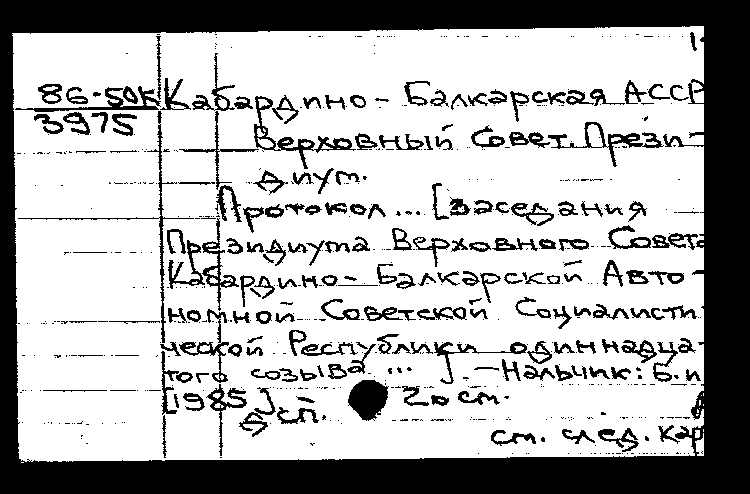 86-50К Кабардино-Балкарская АССР
3975
Верховный Совет. Прези-
диум.
Протокол... [заседания
Президиума Верховного Совета
Кабардино-Балкарской Авто-
номной Советской Социалисти-
ческой Республики одиннадца-
того созыва ... ]. - Нальчик: Б.и
[1985]
20 см.
см. след. кар